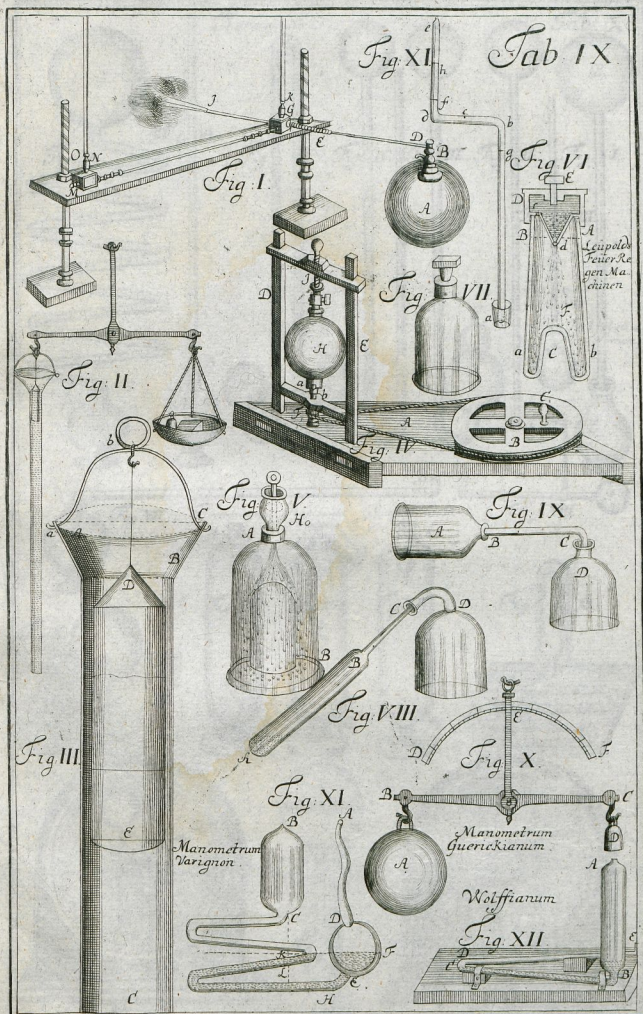 Tab IX.
Fig: XI
Fig: I.
Fig: VI
Leupolds
Feuer Re
gen Ma
chinen
Fig: VII.
Fig: II.
Fig: IV.
Fig: V.
Fig: IX
Fig: VIII.
Fig: III.
Fig: X.
Fig: XI.
Manometrum
Varignon.
Manometrum
Guerickianum.
Wolffianum
Fig: XII